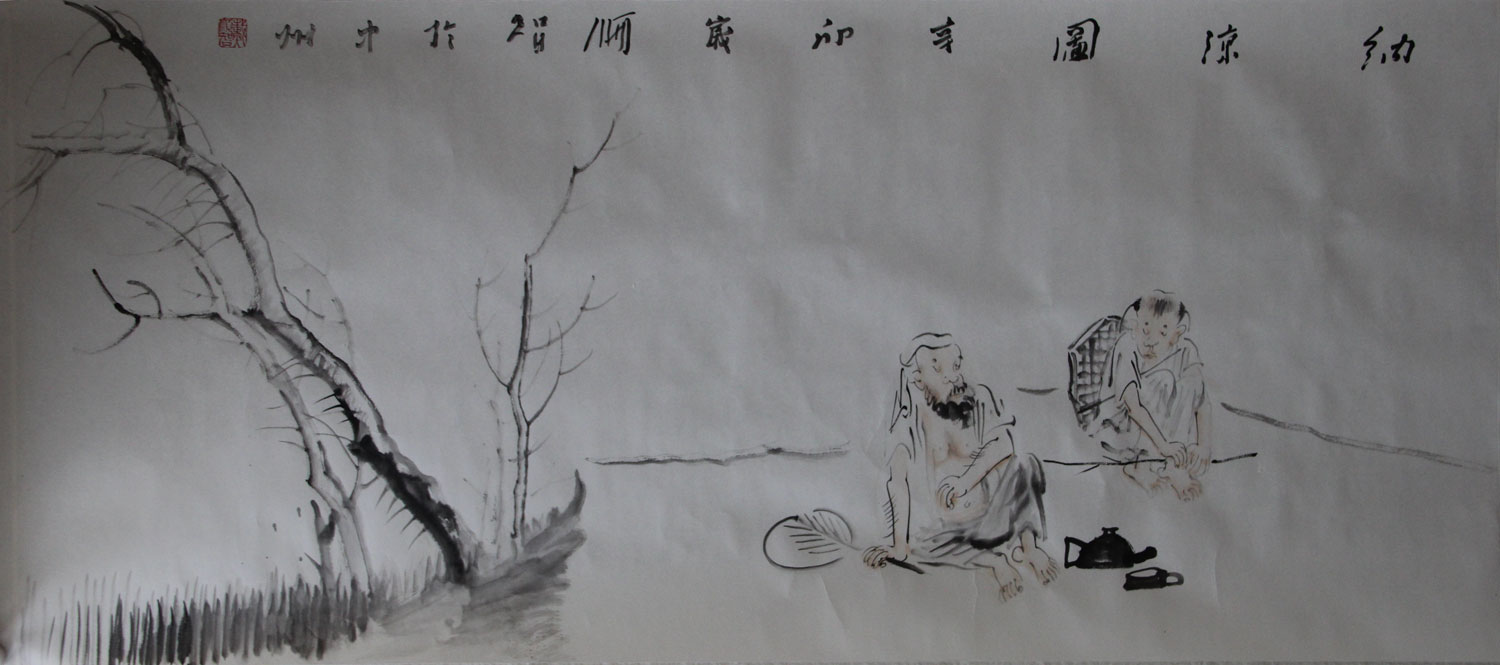 納涼圖辛卯歲順智於中州